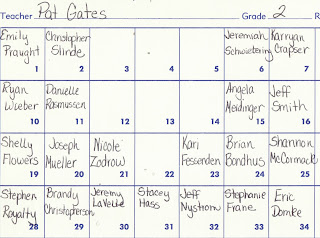 Teacher Pat Gates Grade 2 R
Emily Christopher Jeremiah Karryan
Praught Slinde Schwietering Crapser
1 2 3 4 5 6 7
Ryan Danielle Angela Jeff
Weeber Rasmussen Meidinger Smith
10 11 12 13 14 15 16
Shelly Joseph Nicole Kari Brian Shannon
Flowers Mueller Zodrow Fessenden Bondhus McCormack
19 20 21 22 23 24 25
Stephen Brandy Jeremy Stacey Jeff Stephanie Eric
Royalty Christopherson LaVelle Hass Nystrom Frane Domke
28 29 30 31 32 33 34